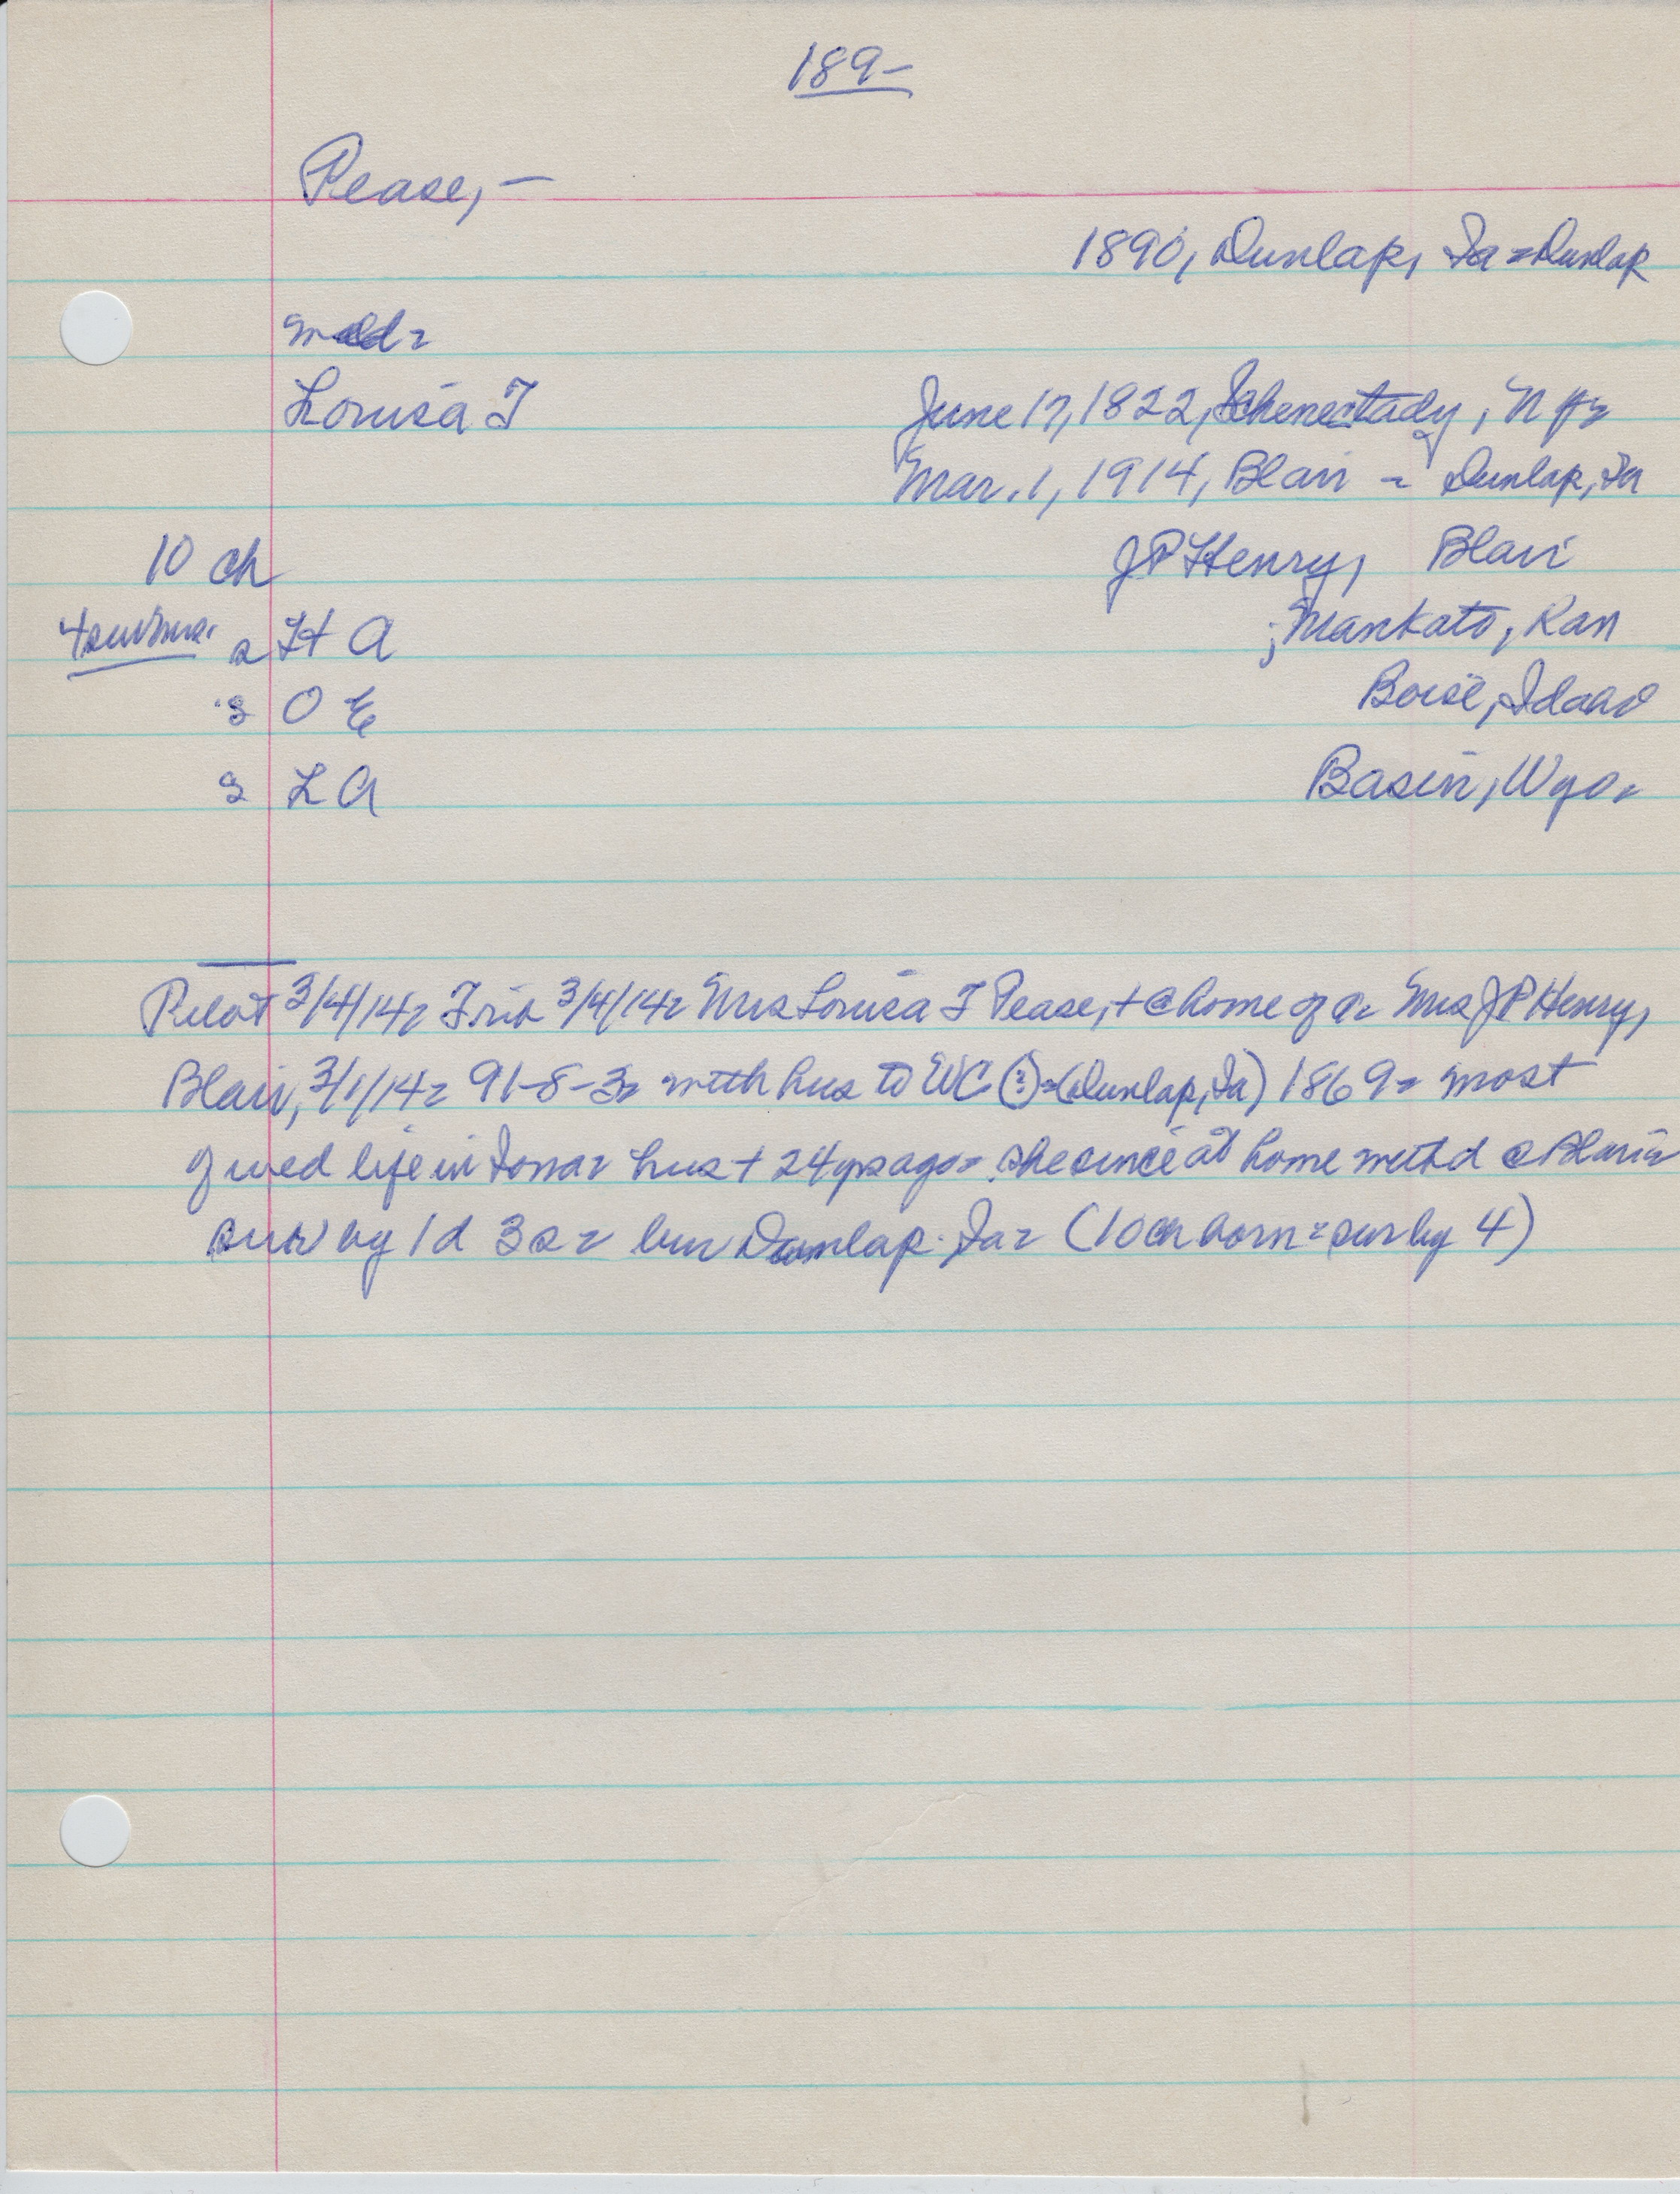 189-
Pease, -
1890, Dunlap, Ia = Dunlap
Louisa T
June 17, 1822, Schenectady, N Y =
Mar. 1, 1914, Blair - Dunlap, Ia
J P Henry, Blair
10 ch
s H A ; Mankato, Kan
s O E Boise, Idaho
s L A Basin, Wyo.
Pilot 3/4/14 = Trib 3/4/14 = Mrs Louisa T Pease, + @ home of d = Mrs J P Henry,
Blair, 3/1/14 = 91-8-3 = with hus to WC (?) = (Dunlap, Ia) 1869 = most
of wed life in Iowa = hus + 24 yrs ago = she since at home with d @ Blair =
surv by 1 d 3 s = bur Dunlap. Ia = (10 ch born = sur by 4)